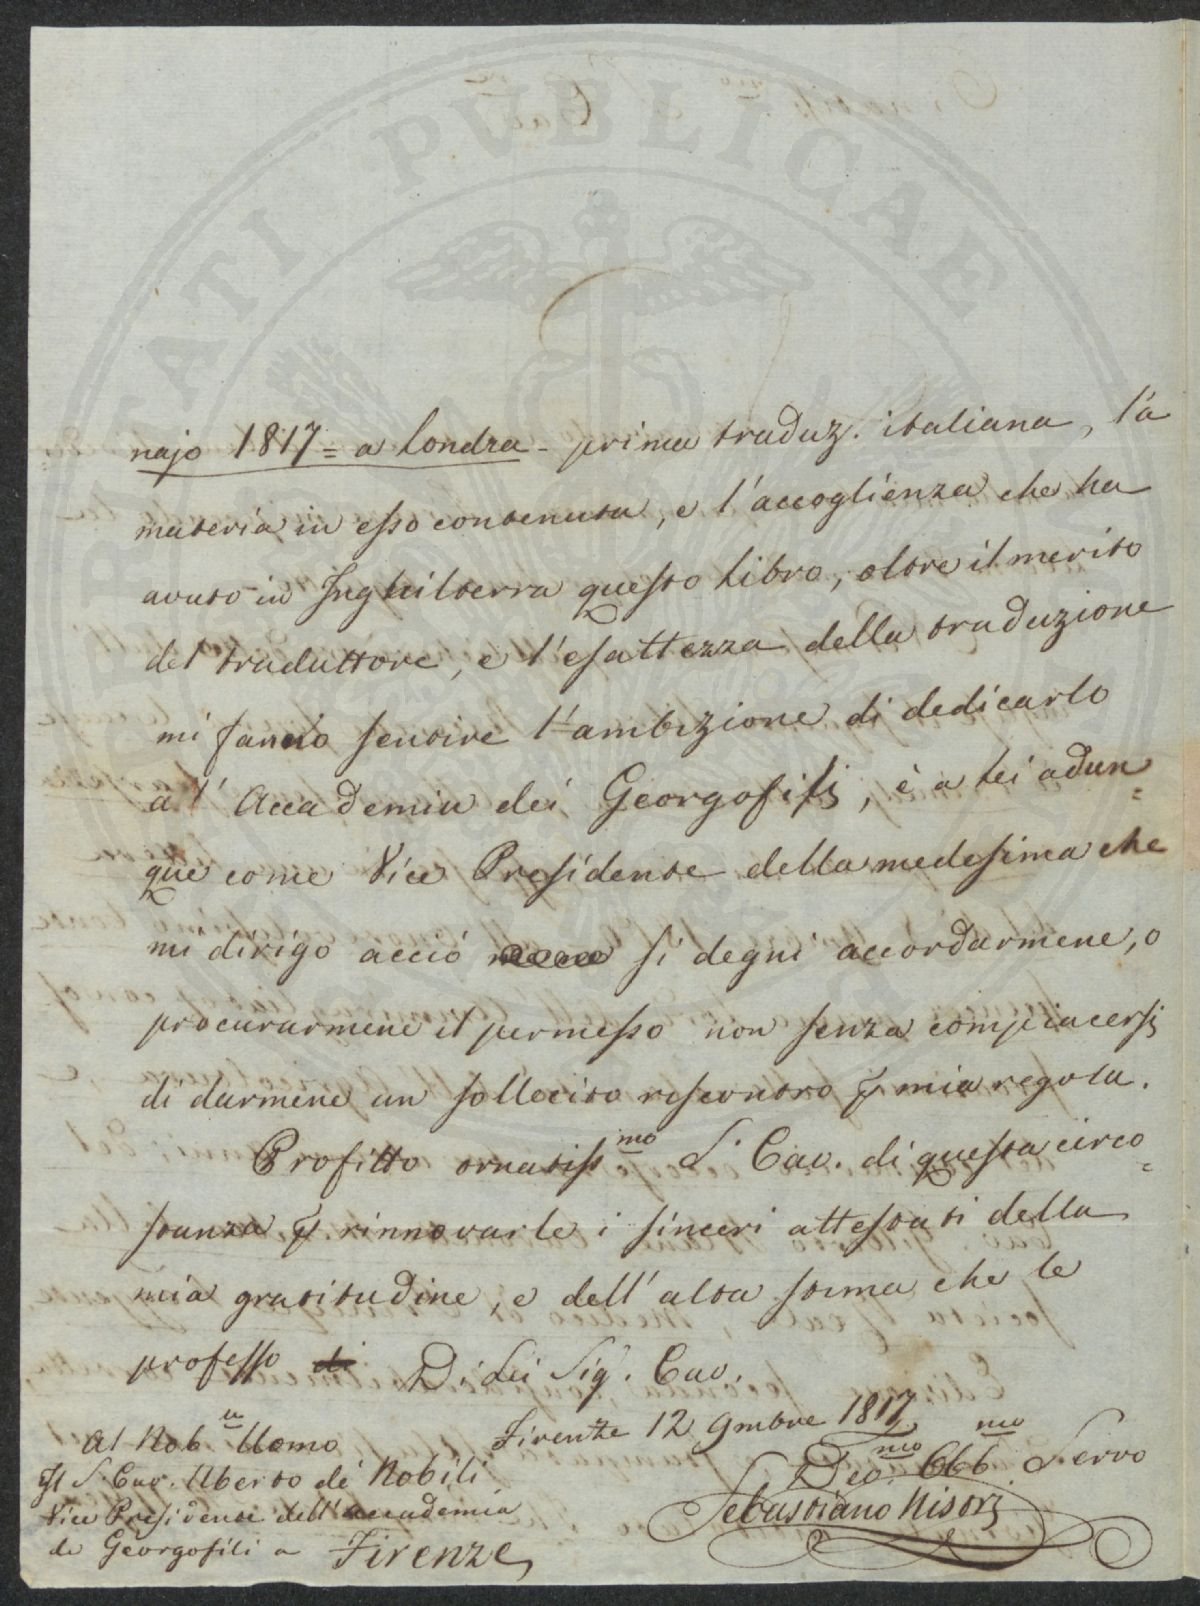 PUBLICAE
najo 1817 = a Londra - prima traduz. italiana, la
materia in esso contenuta, e l'accoglienza che ha
avuto in Inghilterra questo libro, oltre il merito
del traduttore, e l'esattezza della traduzione
mi fanno sentire l'ambizione di dedicarlo
all' Accademia dei Georgofili, è a Lei adun=
que come Vice Presidente della medesima che
mi dirigo acciò si degni accordarmene, o
procurarmene il permesso non senza compiacersi
di darmene un sollecito riscontro p mia regola.
Profitto ornatiss.mo S. Cav. di questa circo=
stanza p rinnovarle i sinceri attestati della
mia gratitudine, e dell' alta stima che le
professo di Di Lei Sig. Cav.
Firenze 12 9mbre 1817
Dev.mo Obb.mo Servo
Sebastiano Nistri
Al Nob.le Uomo
Il S. Cav. Uberto de' Nobili
Vice Presidente dell' accademia
de Georgofili a Firenze